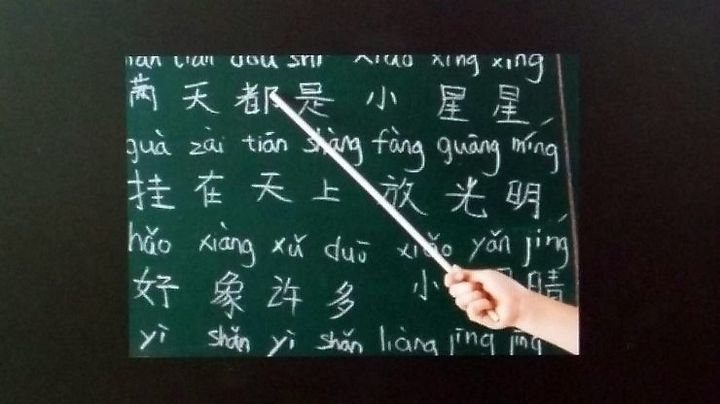 tian dou shi xiao xing xing
满 天 都 是 小 星 星,
guà zài tiān shàng fàng guāng míng
挂 在 天 上 放 光 明,
hǎo xiàng xǔ duō xiǎo yǎn jīng
好 象 许 多 小 睛
yì shǎn yì shǎn liàng jīng jīng